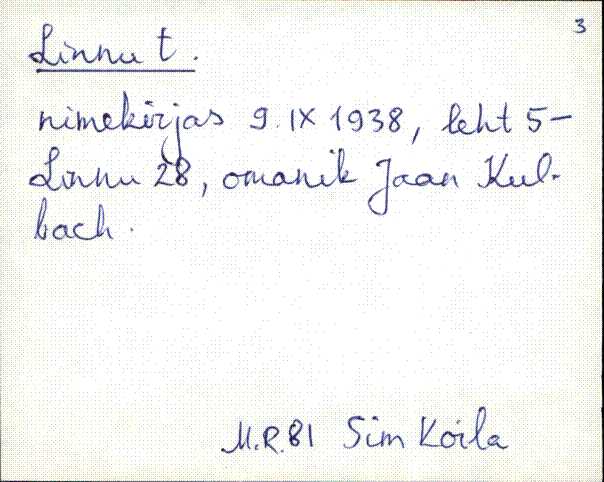 3
Linnu t.
nimekirjas 9. IX 1938, leht 5-
Linnu 28, omanik Jaan Kul-
bach.
M.R. 81 Sim Koila